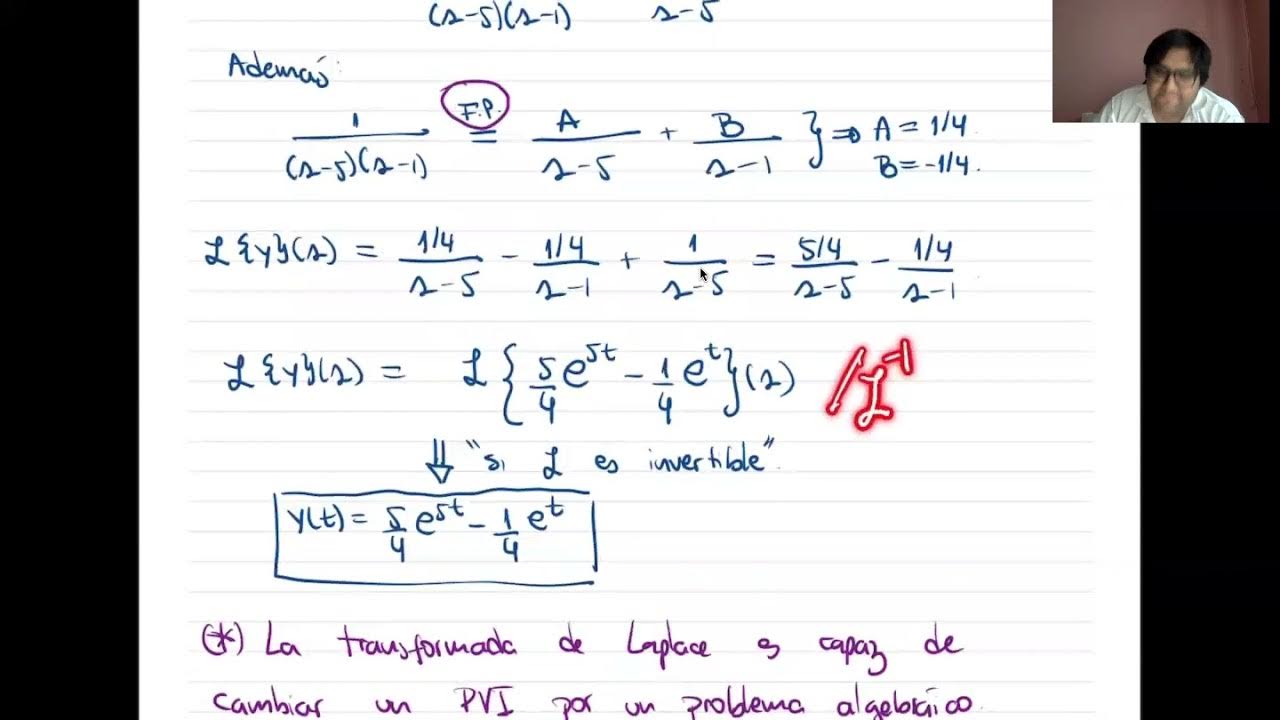 (s-5)(s-1)    s-5
Además:
1/((s-5)(s-1)) =(F.P.) A/(s-5) + B/(s-1) } ⇒ A = 1/4
B = -1/4.
ℒ{y}(s) = (1/4)/(s-5) - (1/4)/(s-1) + 1/(s-5) = (5/4)/(s-5) - (1/4)/(s-1)
ℒ{y}(s) = ℒ{5/4 e^{5t} - 1/4 e^t}(s) /ℒ^{-1}
⇓ "si ℒ es invertible".
y(t) = 5/4 e^{5t} - 1/4 e^t
(*) La transformada de Laplace es capaz de
cambiar un PVI por un problema algebráico.